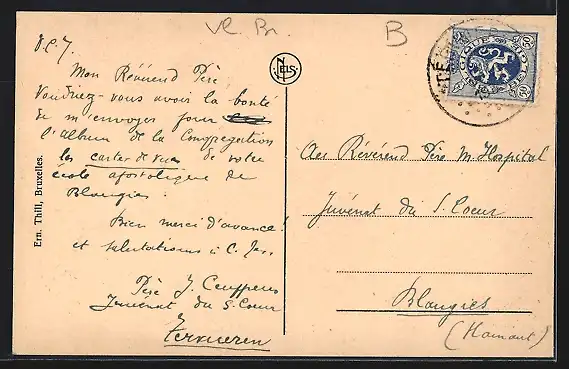 Vl. Br.
B
P.C.J.
Mon Révérend Père,
Voudriez-vous avoir la bonté
de m'envoyer pour
l'album de la Congrégation
les cartes de vues de votre
école apostolique de
Blaugies.
Bien merci d'avance!
et salutations
Père J.
Juvénat du S. Coeur
Tervueren
NELS
Ern. Thill, Bruxelles.
Au Révérend Père M. Hospital
Juvénat du S. Coeur
Blaugies
(Hainaut)